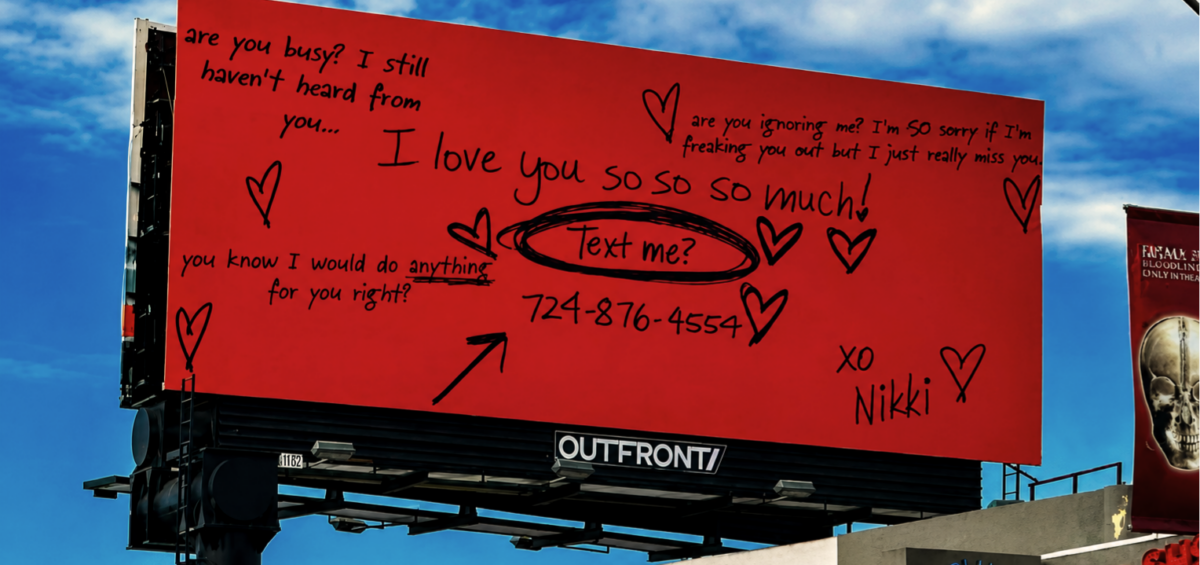 are you busy? I still
haven't heard from
you...
I love you so so so much!
are you ignoring me? I'm SO sorry if I'm
freaking you out but I just really miss you.
Text me?
you know I would do anything
for you right?
724-876-4554
XO
Nikki
OUTFRONT/
1182
BLOODLIN
ONLY IN THEA